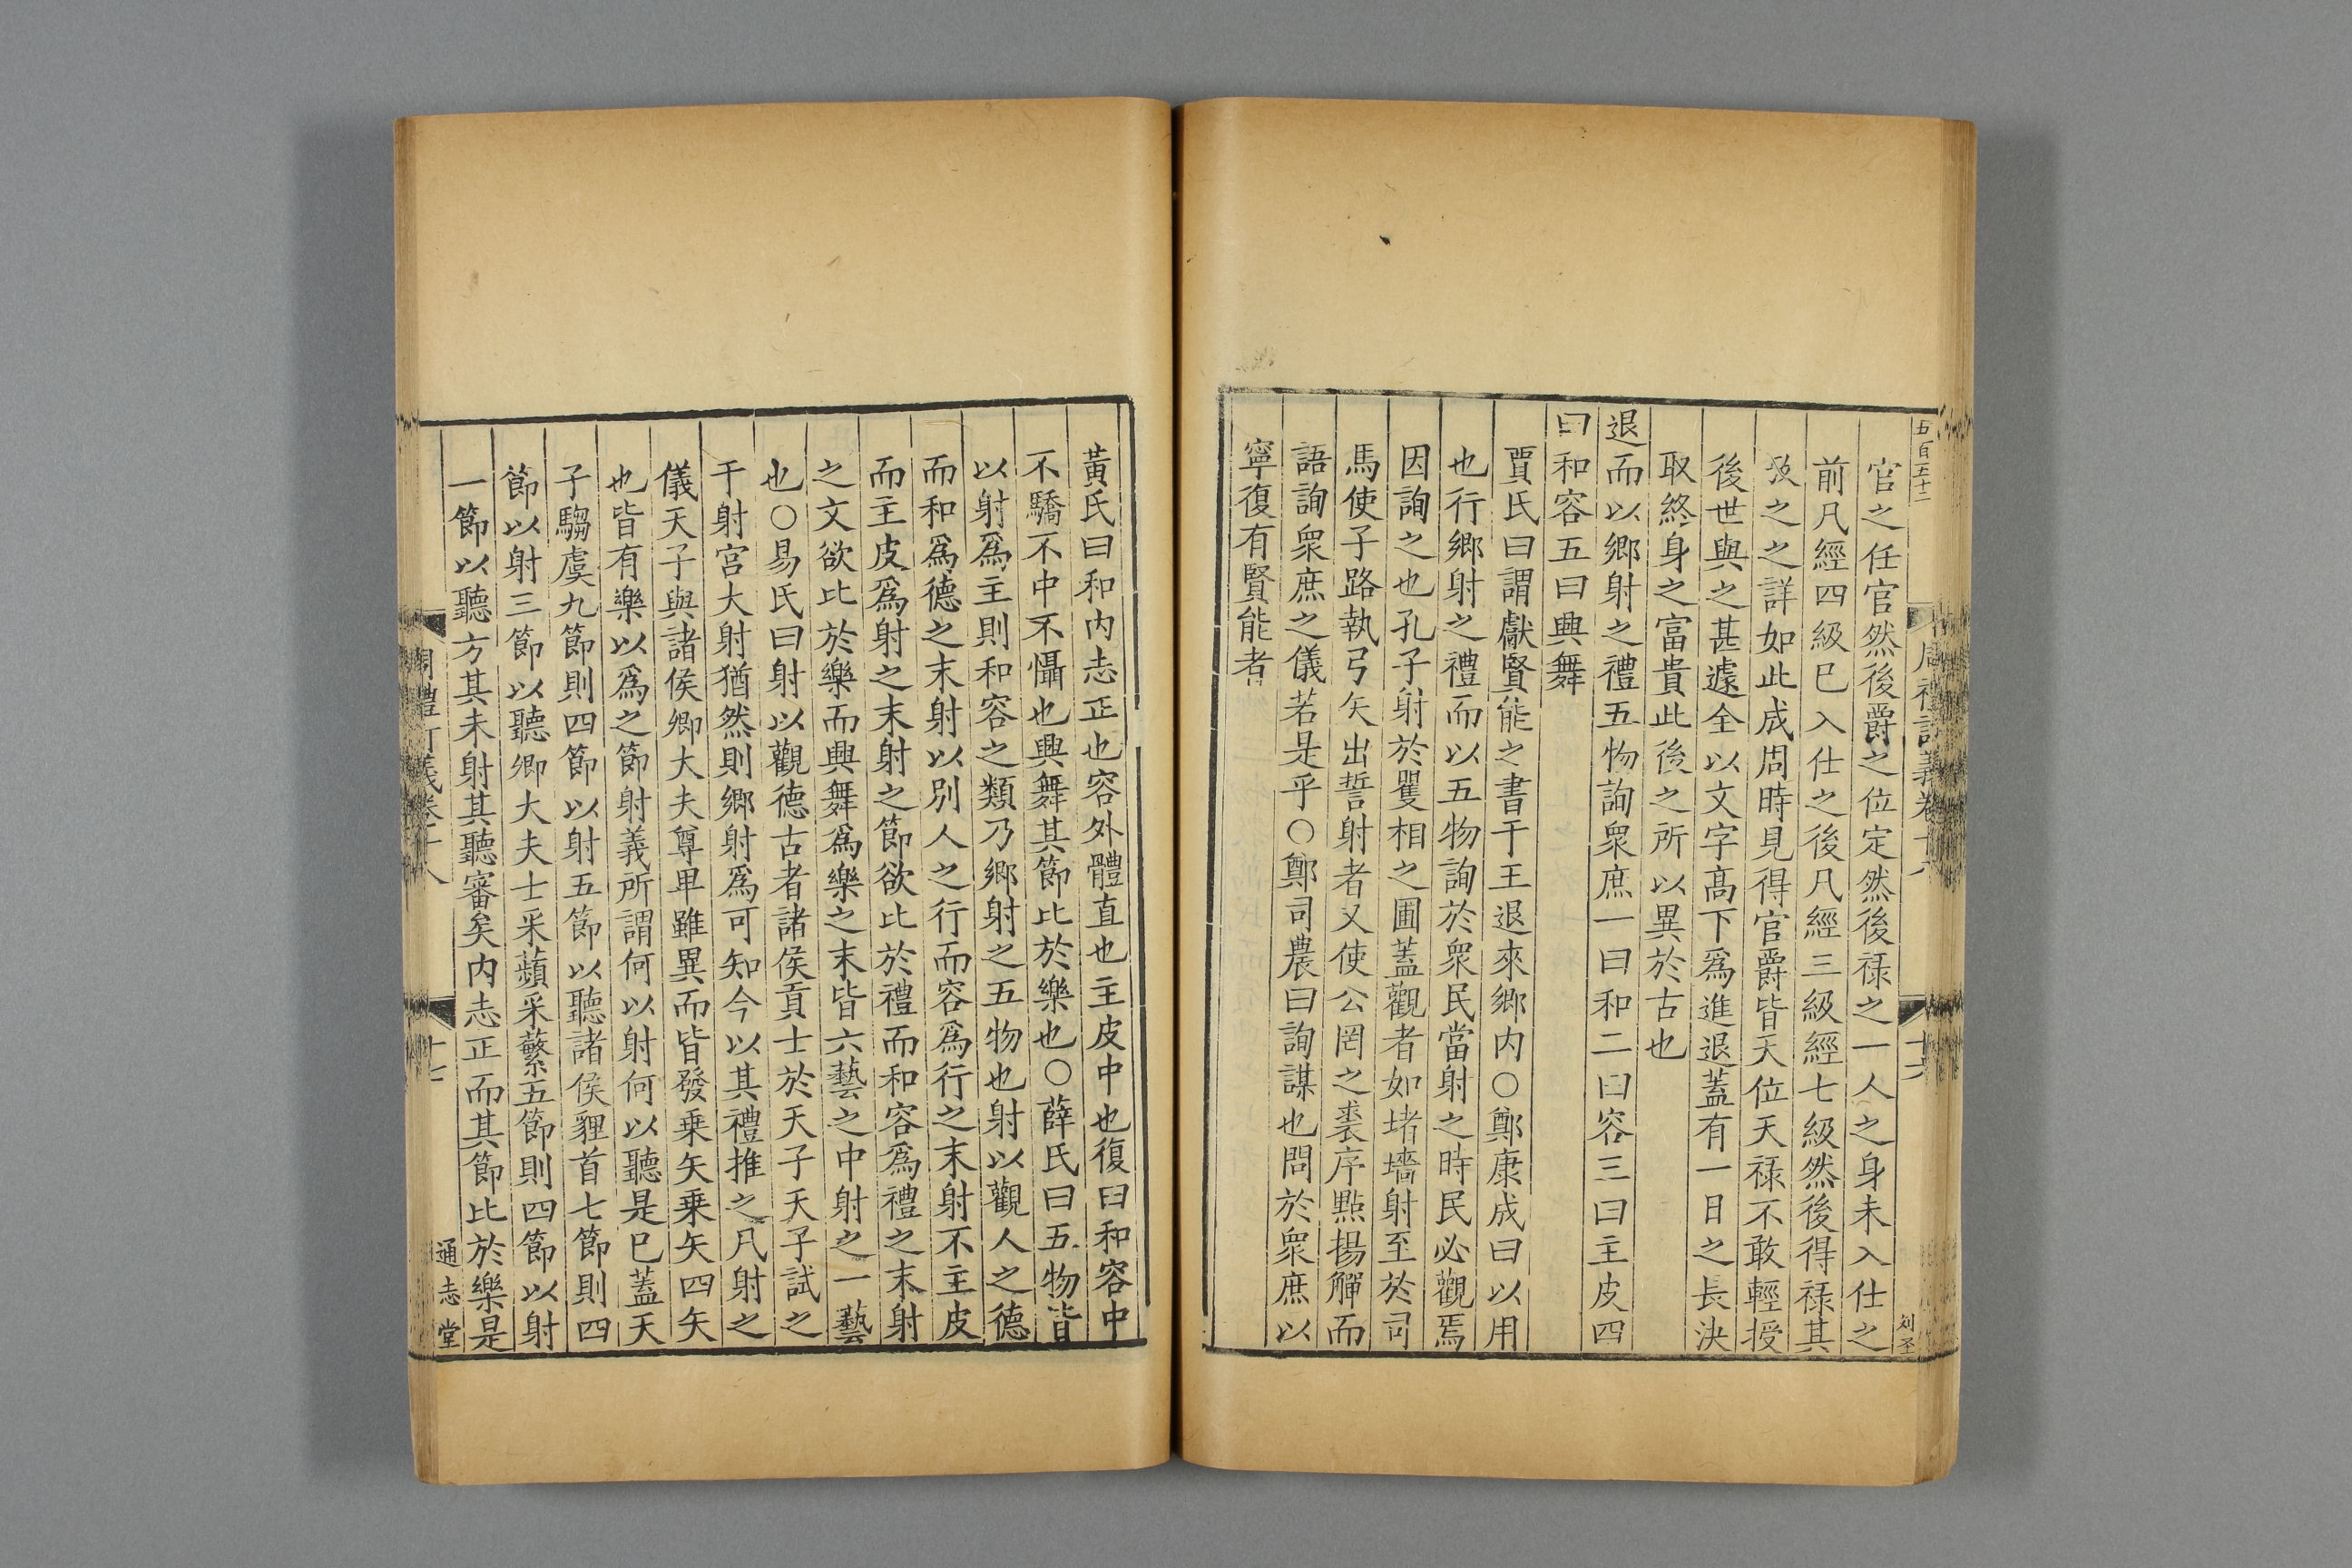 五百五十二
周禮訂義卷十八
十六
刘圣
官之任官然後爵之位定然後祿之一人之身未入仕之
前凡經四級巳入仕之後凡經三級經七級然後得祿其
攷之之詳如此成周時見得官爵皆天位天祿不敢輕授
後世與之甚遽全以文字高下爲進退蓋有一日之長決
取終身之富貴此後之所以異於古也
退而以鄉射之禮五物詢衆庶一曰和二曰容三曰主皮四
曰和容五曰興舞
賈氏曰謂獻賢能之書于王退來鄉内○鄭康成曰以用
也行鄉射之禮而以五物詢於衆民當射之時民必觀焉
因詢之也孔子射於矍相之圃蓋觀者如堵墻射至於司
馬使子路執弓矢出誓射者又使公罔之裘序點揚觶而
語詢衆庶之儀若是乎○鄭司農曰詢謀也問於衆庶以
寧復有賢能者
黃氏曰和内志正也容外體直也主皮中也復曰和容中
不驕不中不懾也興舞其節比於樂也○薛氏曰五物皆
以射爲主則和容之類乃鄉射之五物也射以觀人之德
而和爲德之末射以別人之行而容爲行之末射不主皮
而主皮爲射之末射之節欲比於禮而和容爲禮之末射
之文欲比於樂而興舞爲樂之末皆六藝之中射之一藝
也○易氏曰射以觀德古者諸侯貢士於天子天子試之
于射宮大射猶然則鄉射爲可知今以其禮推之凡射之
儀天子與諸侯卿大夫尊卑雖異而皆發乗矢乗矢四矢
也皆有樂以爲之節射義所謂何以射何以聽是巳蓋天
子騶虞九節則四節以射五節以聽諸侯貍首七節則四
節以射三節以聽卿大夫士采蘋采蘩五節則四節以射
一節以聽方其未射其聽審矣内志正而其節比於樂是
周禮訂義卷十八
十七
通志堂